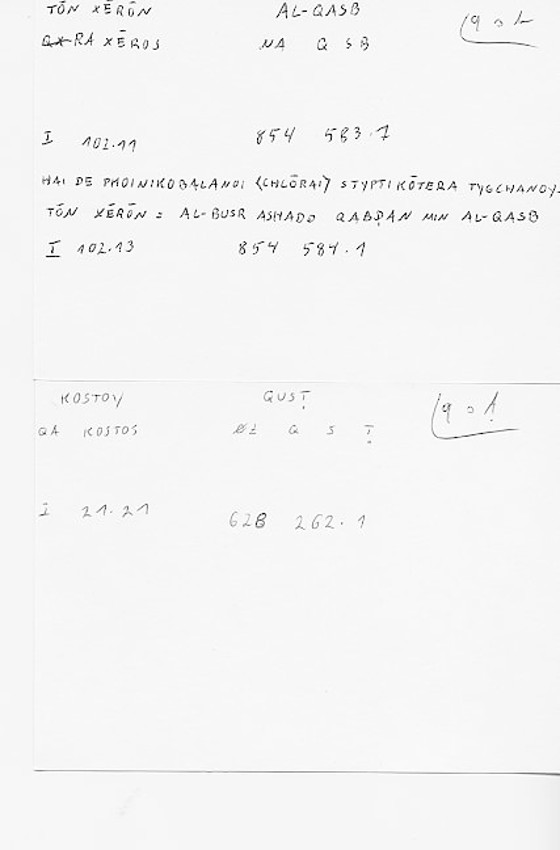 TŌN XĒRŌN AL-QASB
RA XĒROS NA Q S B
I 102.11 854 583.7
HAI DE PHOINIKOBALANOI (CHLŌRAI) STYPTIKŌTERA TYGCHANOY-
TŌN XĒRŌN = AL-BUSR ASHADD QABḌAN MIN AL-QASB
I 102.13 854 584.1
KOSTOY QUSṬ
QA KOSTOS Q S Ṭ
I 21.21 628 262.1